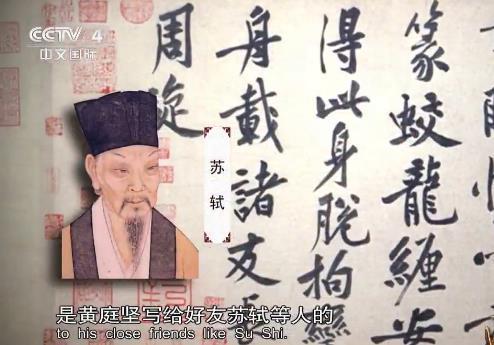 CCTV 4
中文国际
篆蛟龍纏安
得此身脫拘攣
舟載諸友長
周旋
苏轼
是黄庭坚写给好友苏轼等人的
to his close friends like Su Shi.